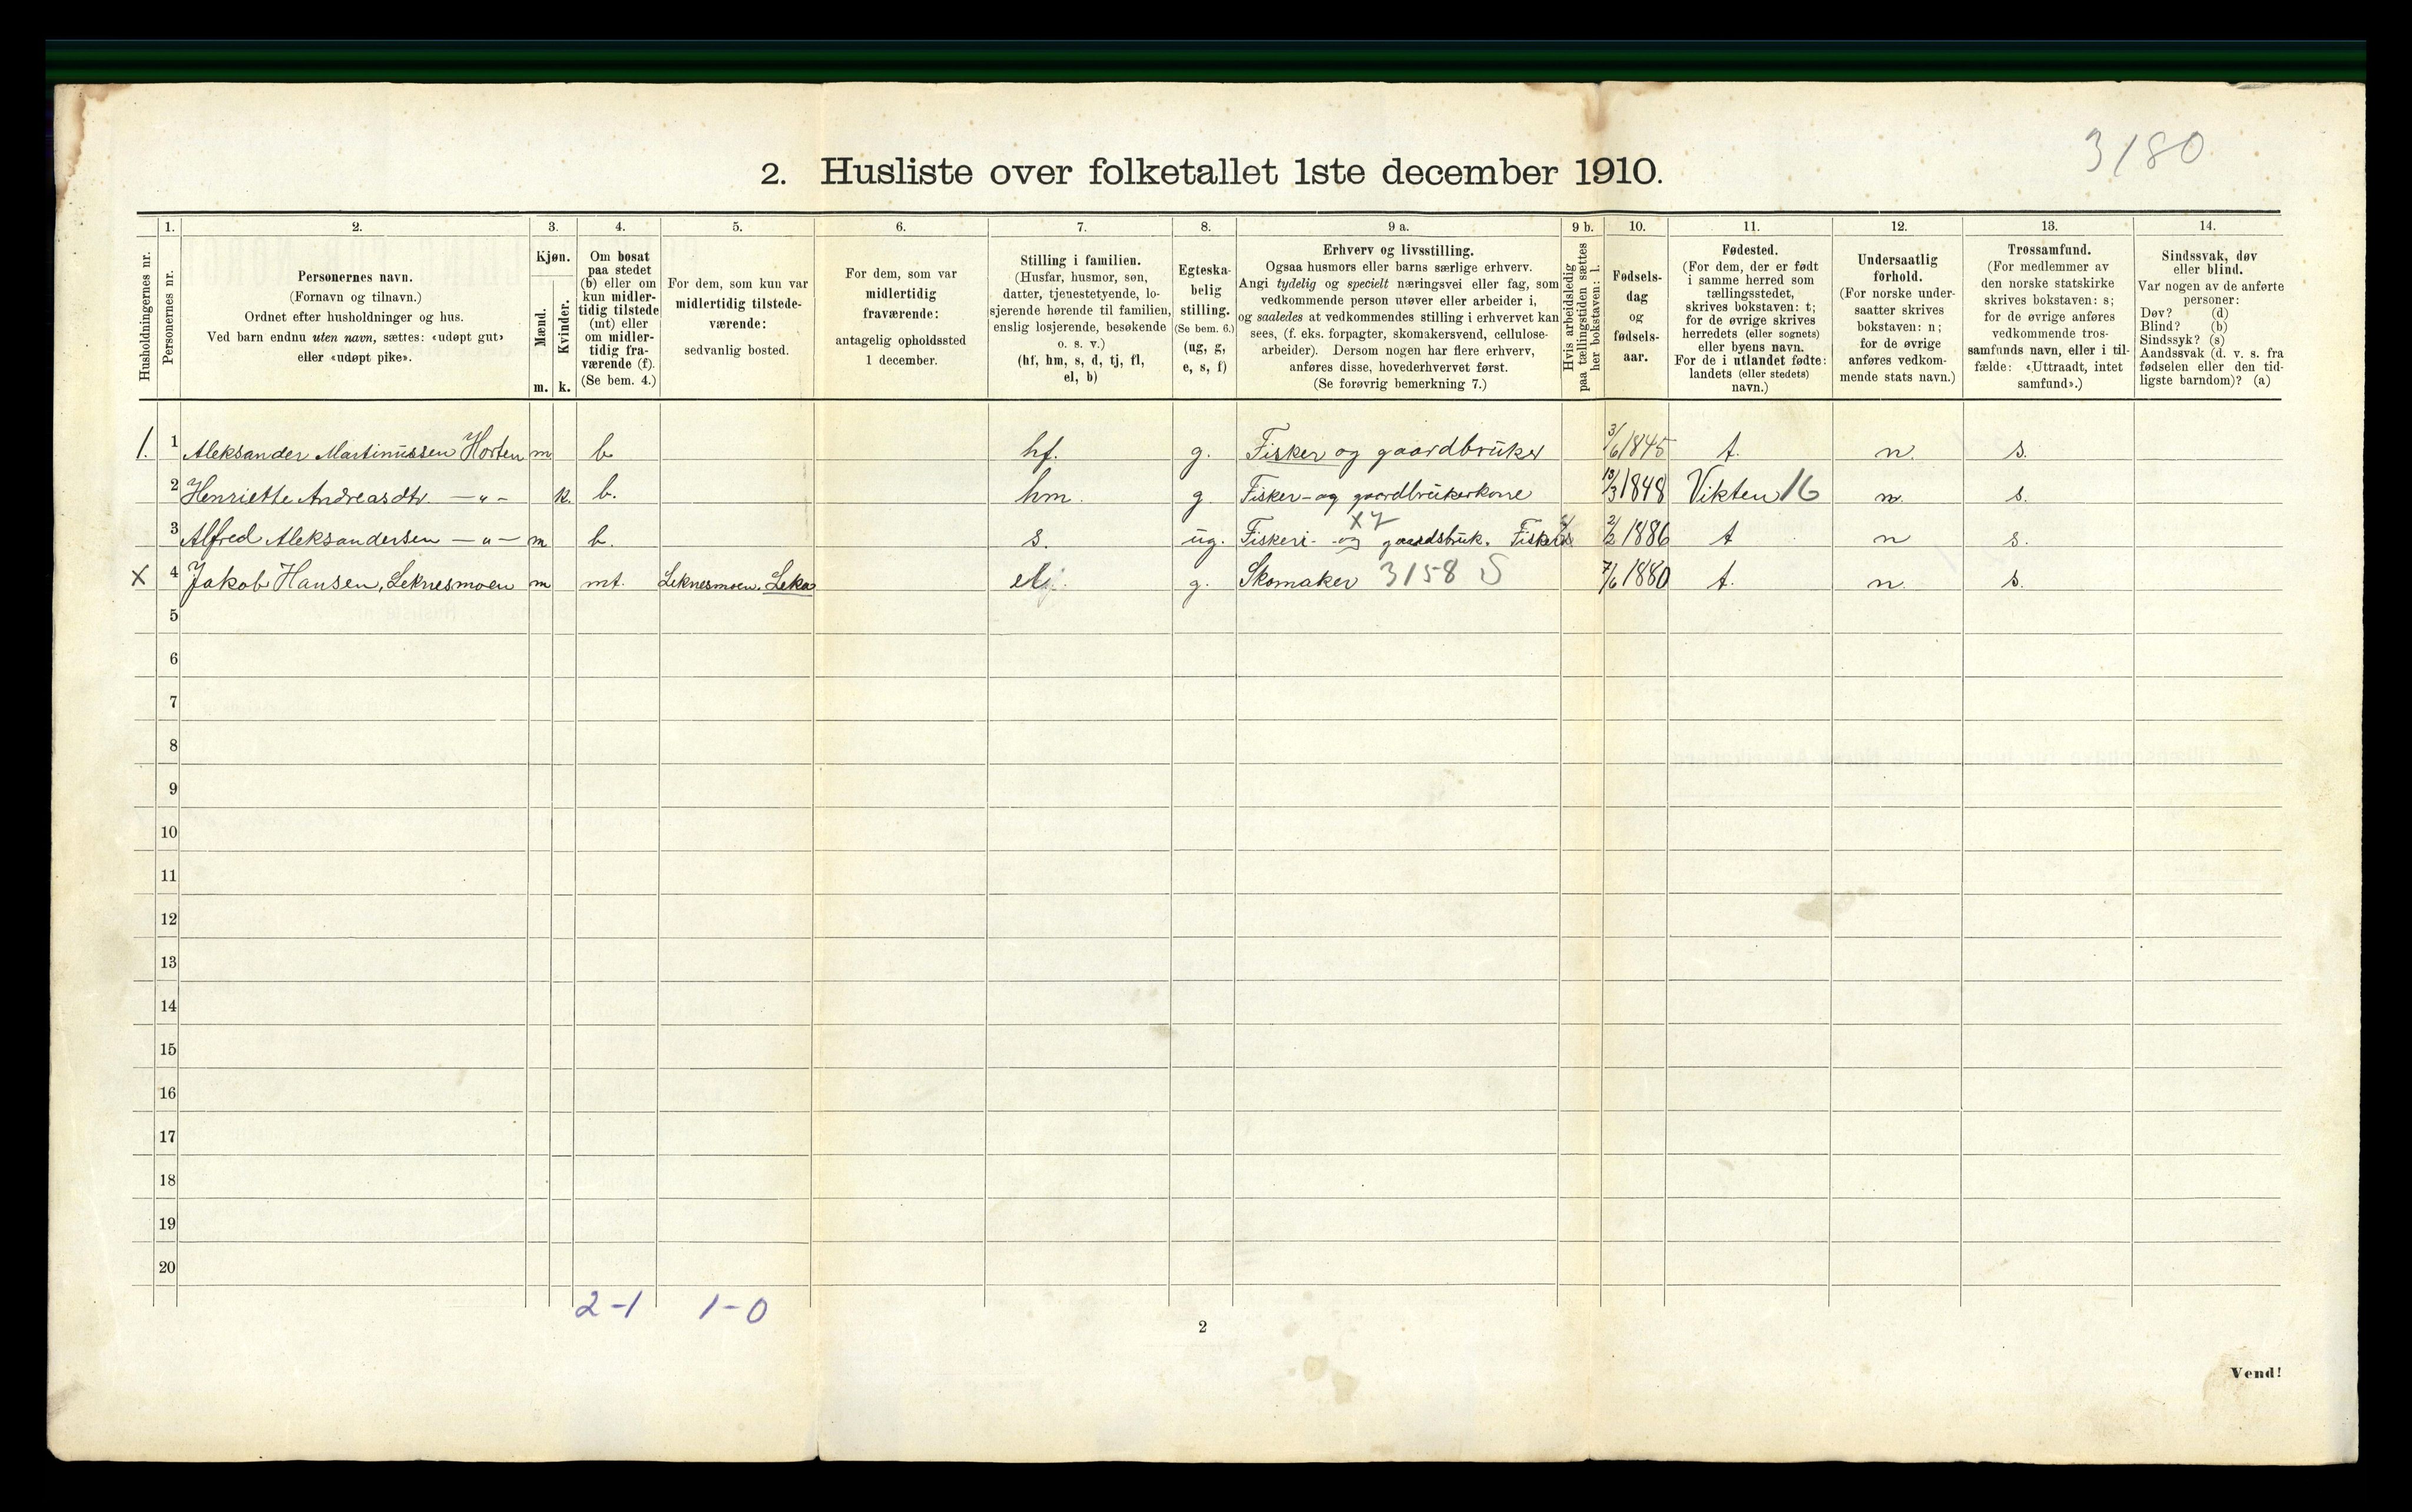 3180
2. Husliste over folketallet 1ste december 1910.
Husholdningernes nr.
1.
Personernes nr.
2.
Personernes navn.
(Fornavn og tilnavn.)
Ordnet efter husholdninger og hus.
Ved barn endnu uten navn, sættes: «udøpt gut»
eller «udøpt pike».
3.
Kjøn.
Mænd.
m.
Kvinder.
k.
4.
Om bosat
paa stedet
(b) eller om
kun midler-
tidig tilstede
(mt) eller
om midler-
tidig fra-
værende (f).
(Se bem. 4.)
5.
For dem, som kun var
midlertidig tilstede-
værende:
sedvanlig bosted.
6.
For dem, som var
midlertidig
fraværende:
antagelig opholdssted
1 december.
7.
Stilling i familien.
(Husfar, husmor, søn,
datter, tjenestetyende, lo-
sjerende hørende til familien,
enslig losjerende, besøkende
o. s. v.)
(hf, hm, s, d, tj, fl,
el, b)
8.
Egteska-
belig
stilling.
(Se bem. 6.)
(ug, g,
e, s, f)
9 a.
Erhverv og livsstilling.
Ogsaa husmors eller barns særlige erhverv.
Angi tydelig og specielt næringsvei eller fag, som
vedkommende person utøver eller arbeider i,
og saaledes at vedkommendes stilling i erhvervet kan
sees, (f. eks. forpagter, skomakersvend, cellulose-
arbeider). Dersom nogen har flere erhverv,
anføres disse, hovederhvervet først.
(Se forøvrig bemerkning 7.)
9 b.
Hvis arbeidsledig
paa tællingstiden sættes
her bokstaven: l.
10.
Fødsels-
dag
og
fødsels-
aar.
11.
Fødested.
(For dem, der er født
i samme herred som
tællingsstedet,
skrives bokstaven: t;
for de øvrige skrives
herredets (eller sognets)
eller byens navn.
For de i utlandet fødte:
landets (eller stedets)
navn.)
12.
Undersaatlig
forhold.
(For norske under-
saatter skrives
bokstaven: n;
for de øvrige
anføres vedkom-
mende stats navn.)
13.
Trossamfund.
(For medlemmer av
den norske statskirke
skrives bokstaven: s;
for de øvrige anføres
vedkommende tros-
samfunds navn, eller i til-
fælde: «Uttraadt, intet
samfund».)
14.
Sindssvak, døv
eller blind.
Var nogen av de anførte
personer:
Døv? (d)
Blind? (b)
Sindssyk? (s)
Aandssvak (d. v. s. fra
fødselen eller den tid-
ligste barndom)? (a)
1. 1 Aleksander Martinussen Horten m b hf. g. Fisker og gaardbruker 3/6 1845 t. n. s.
2 Henriette Andreasdtr. — „ — k. b. hm. g. Fisker- og gaardbrukerkone 13/3 1848 Vikten 16 n. s.
3 Alfred Aleksandersen — „ — m b. s. ug. Fiskeri- og gaardsbruk. 2/2 1886 t n s.
X 4 Jakob Hansen, Leknesmoen m mt. Leknesmoen. Leka g. Skomaker 3158 S 7/6 1880 t. n. s.
5
6
7
8
9
10
11
12
13
14
15
16
17
18
19
20
2-1 1-0
2
Vend!